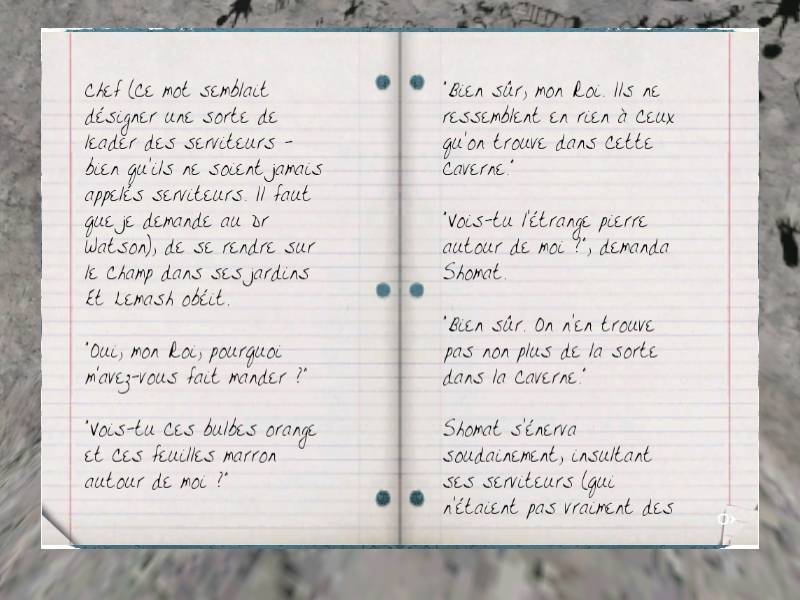 Chef (Ce mot semblait
désigner une sorte de
leader des serviteurs -
bien qu'ils ne soient jamais
appelés serviteurs. Il faut
que je demande au Dr
Watson), de se rendre sur
le champ dans ses jardins
Et Lemash obéit.

"Oui, mon Roi, pourquoi
m'avez-vous fait mander ?"

"Vois-tu ces bulbes orange
et ces feuilles marron
autour de moi ?"

"Bien sûr, mon Roi. Ils ne
ressemblent en rien à ceux
qu'on trouve dans cette
caverne."

"Vois-tu l'étrange pierre
autour de moi ?", demanda
Shomat.

"Bien sûr. On n'en trouve
pas non plus de la sorte
dans la caverne."

Shomat s'énerva
soudainement, insultant
ses serviteurs (qui
n'étaient pas vraiment des